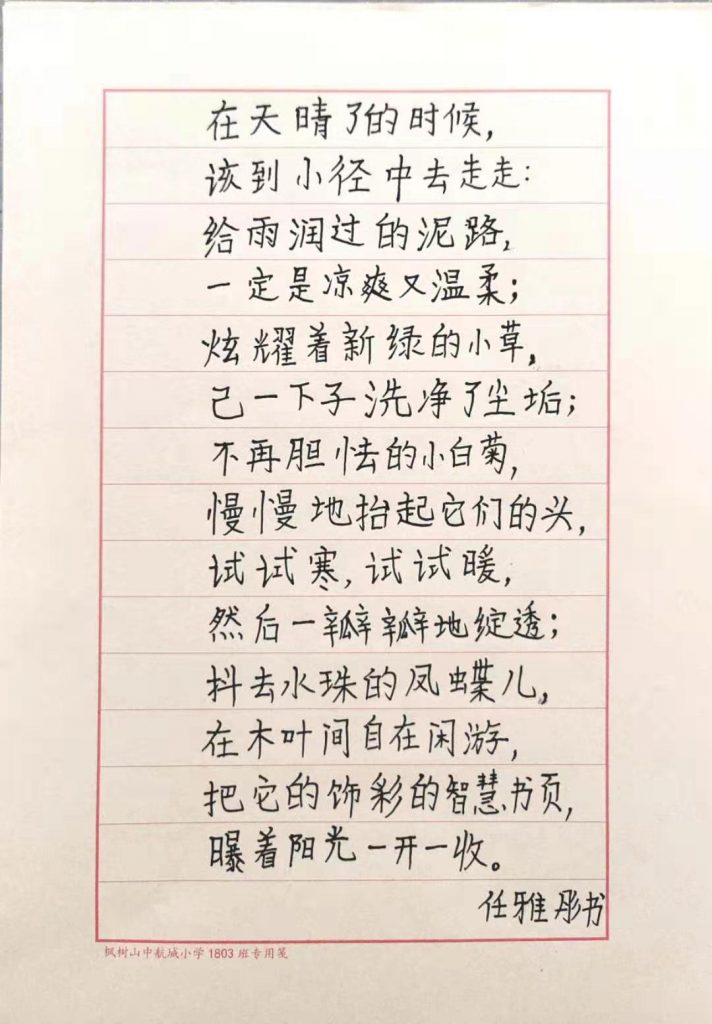 在天晴了的时候，
该到小径中去走走：
给雨润过的泥路，
一定是凉爽又温柔；
炫耀着新绿的小草，
己一下子洗净了尘垢；
不再胆怯的小白菊，
慢慢地抬起它们的头，
试试寒，试试暖，
然后一瓣瓣地绽透；
抖去水珠的凤蝶儿，
在木叶间自在闲游，
把它的饰彩的智慧书页，
曝着阳光一开一收。
任雅彤书
枫树山中航城小学1803班专用笺